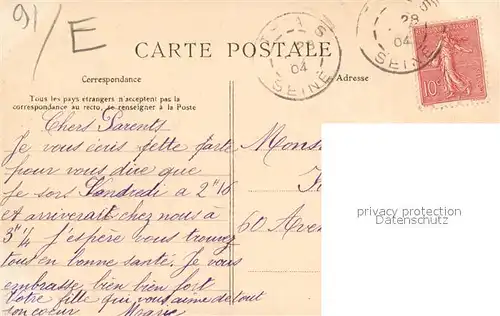 91/E
CARTE POSTALE
SEINE
04
28
04
SEINE
10
Correspondance
Adresse
Tous les pays étrangers n'acceptent pas la
correspondance au recto, se renseigner à la Poste
Chers Parents
Je vous écris cette carte
pour vous dire que
je sors Vendredi a 2h 16
et arriverait chez nous à
3h 1/4 J'espère vous trouvez
tous en bonne santé. Je vous
embrasse bien bien fort
Votre fille qui vous aime de tout
son coeur Marie
Mons
60 Aven
privacy protection
Datenschutz